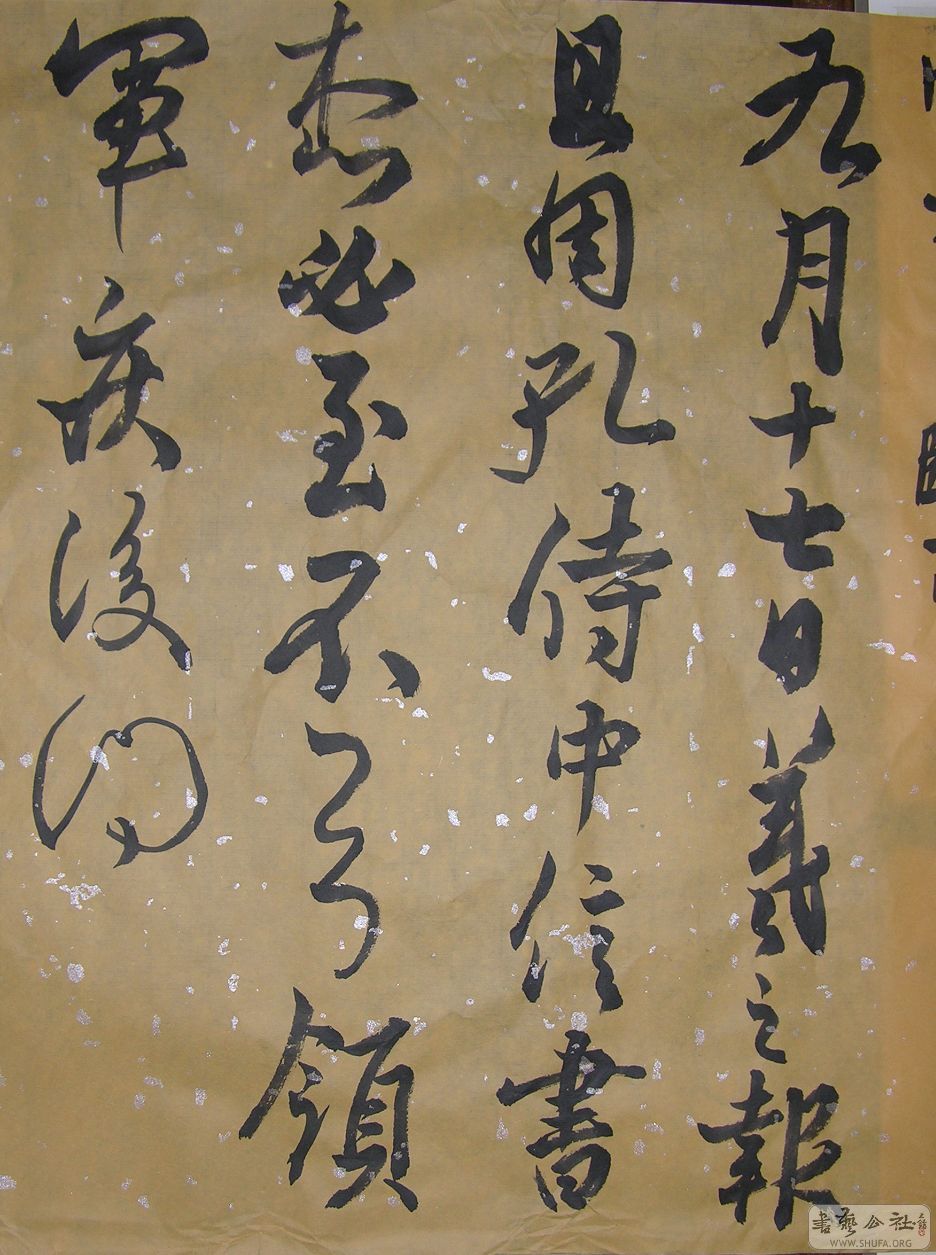 九月十七日羲之報
且因孔侍中信書
想必至不知領
軍疾後問
書藝公社
WWW.SHUFA.ORG